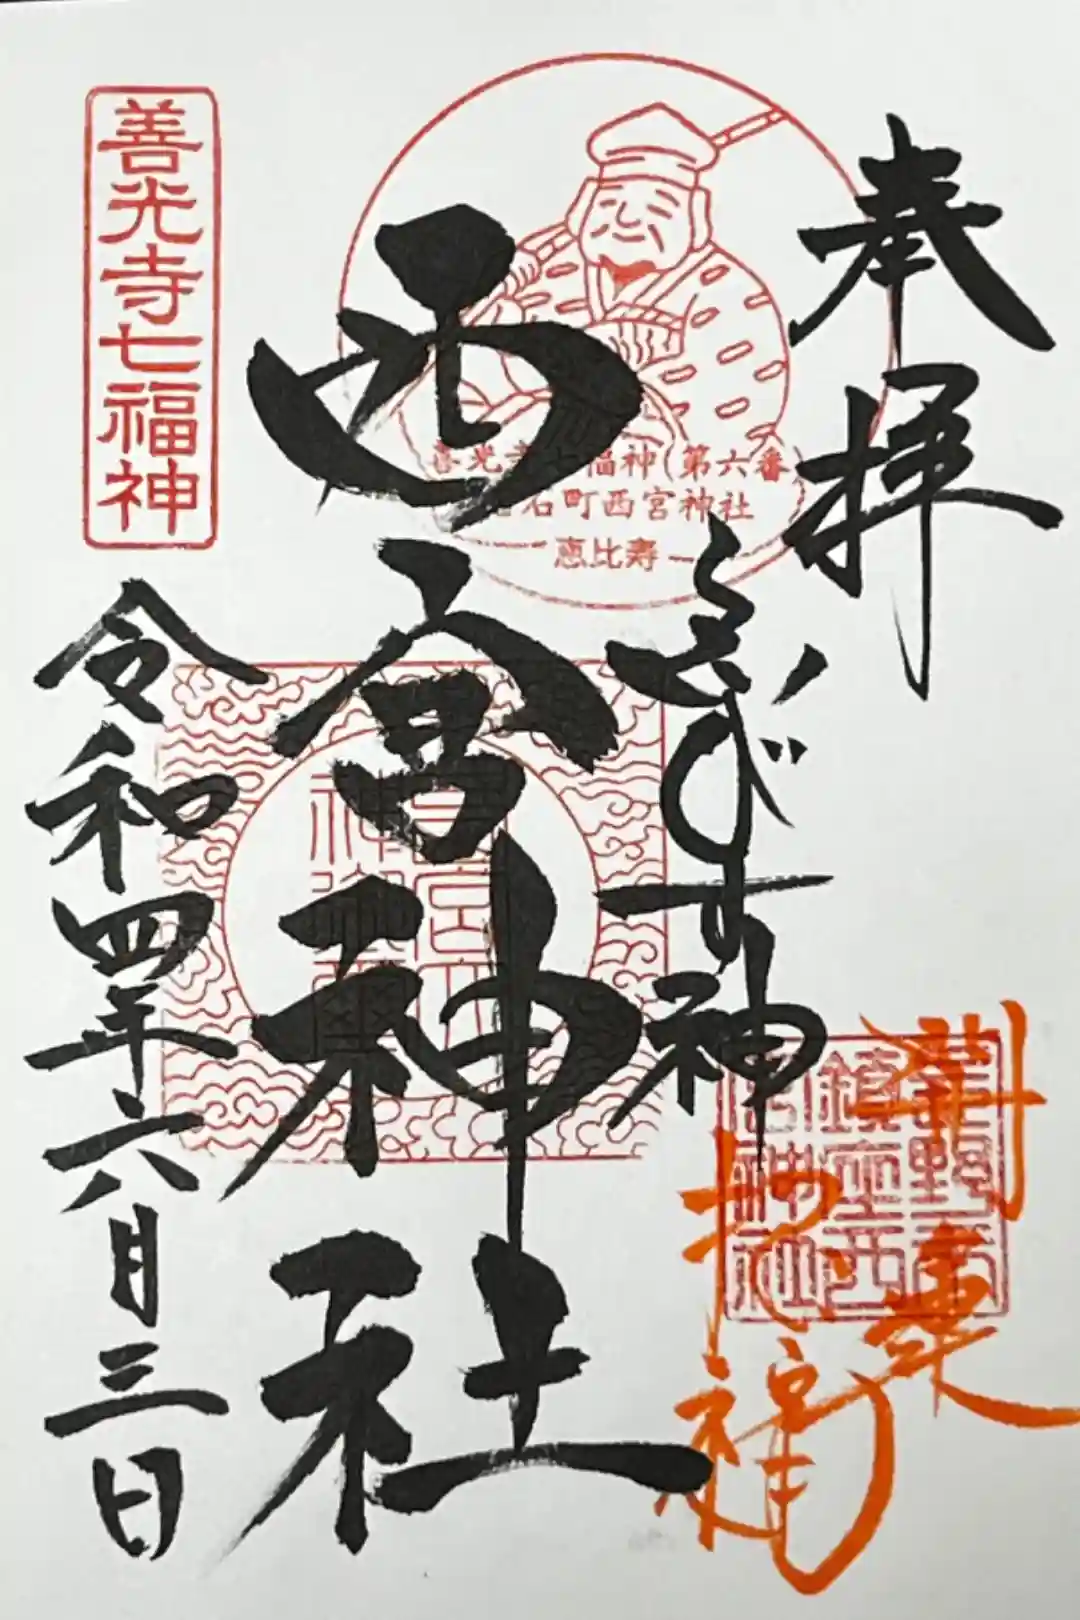 奉拝
ゑびす神
西宮神社
令和四年六月三日
善光寺七福神
善光寺七福神(第六番)
岩石町西宮神社
恵比寿
長野市
鎮座西
宮神社
招福